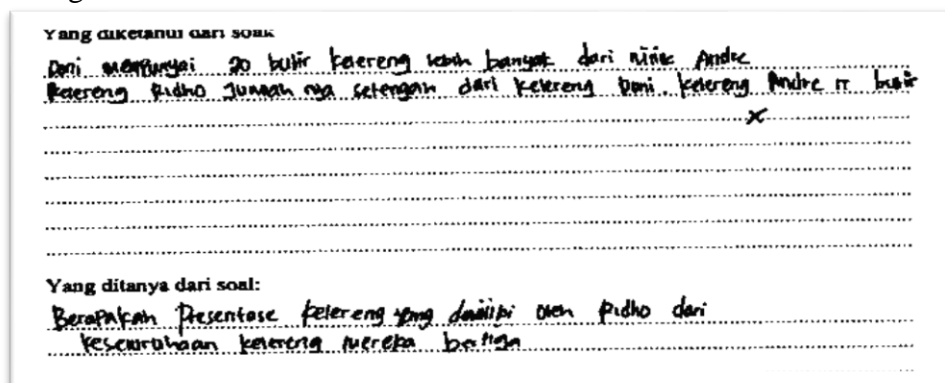 Yang diketahui dari soal:
Doni mempunyai 20 butir kelereng lebih banyak dari milik Andre
Kelereng Ridho Jumlah nya setengah dari kelereng Doni. kelereng Andre butir
x
Yang ditanya dari soal:
Berapakah Presentase kelereng yang dimiliki oleh Ridho dari
keseluruhaan kelereng mereka bertiga